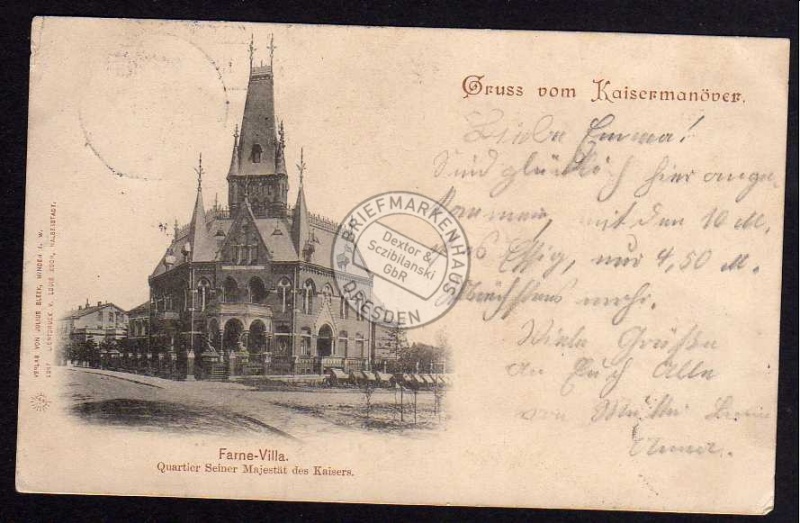 Gruss vom Kaisermanöver.
Liebe Emma!
Sind glücklich hier ange
kommen, mit den 10 M.
Essig, nur 4,50 M.
mehr.
Viele Grüße
an Euch Alle
von
BRIEFMARKENHAUS
Dexter &
Sczibilanski
GbR
DRESDEN
VERLAG VON JULIUS BLEEK, MINDEN I. W.
LICHTDRUCK V. LOUIS KOCH, HALBERSTADT.
Farne-Villa.
Quartier Seiner Majestät des Kaisers.